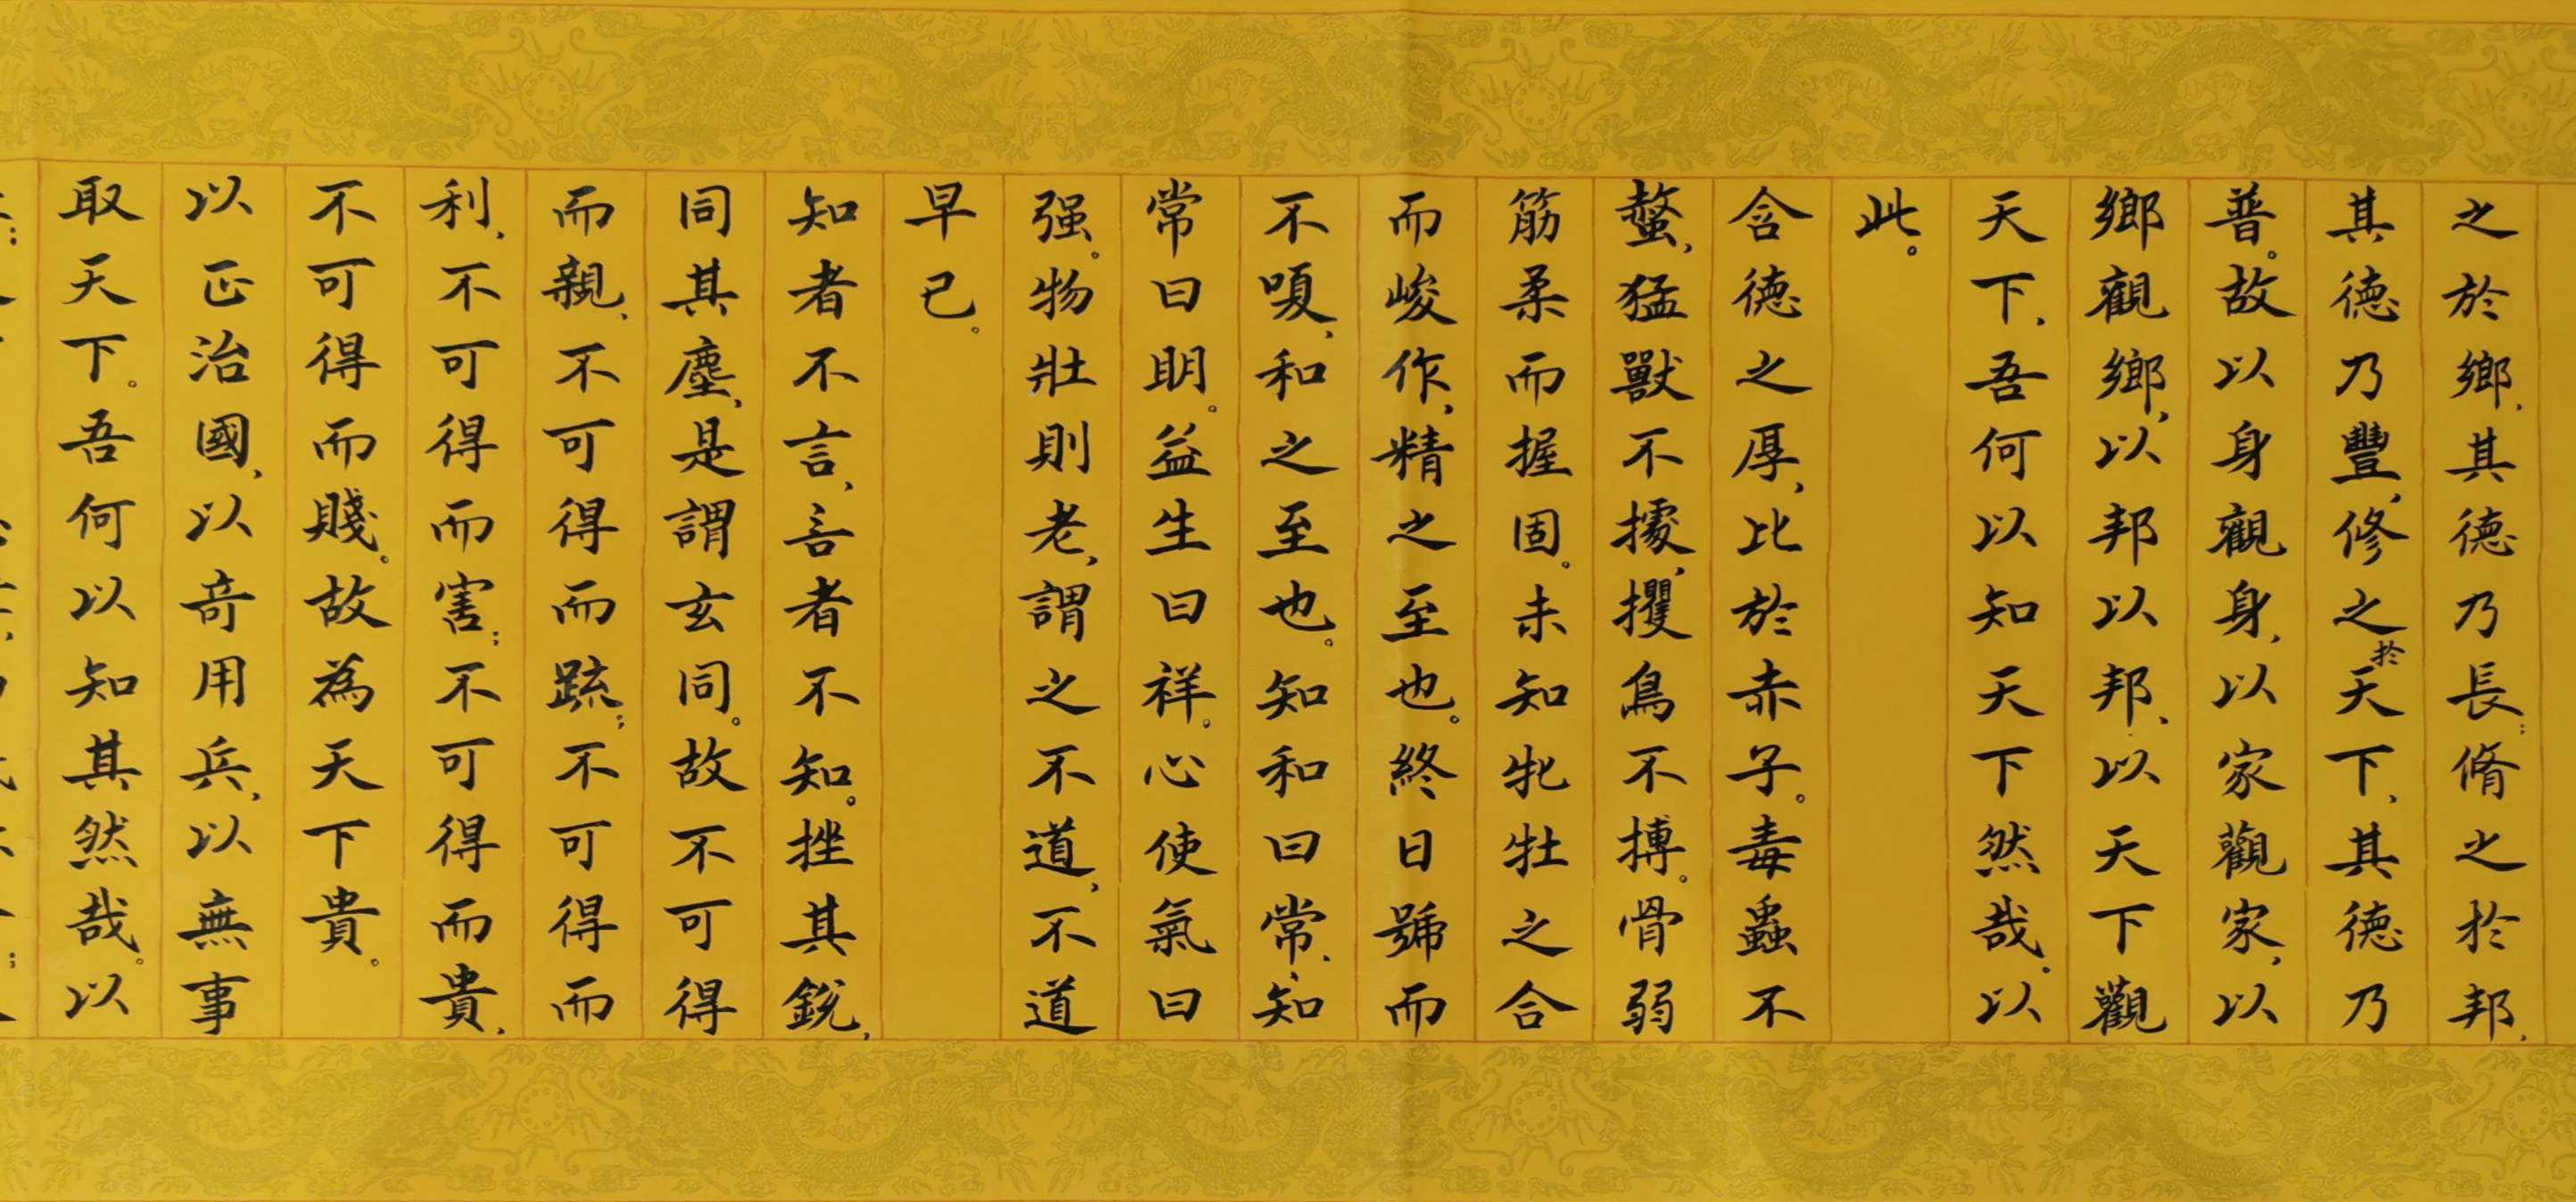 之於鄉，其德乃長；脩之於邦，
其德乃豐，修之於天下，其德乃
普。故以身觀身，以家觀家，以
鄉觀鄉，以邦以邦，以天下觀
天下，吾何以知天下然哉。以
此。
含德之厚，比於赤子。毒蟲不
螫，猛獸不據，攫鳥不搏。骨弱
筋柔而握固。未知牝牡之合
而峻作，精之至也。終日號而
不嗄，和之至也。知和曰常，知
常曰明。益生曰祥。心使氣曰
强。物壯則老，謂之不道，不道
早已。
知者不言，言者不知。挫其銳，
同其塵，是謂玄同。故不可得
而親，不可得而疏；不可得而
利，不可得而害；不可得而貴，
不可得而賤。故為天下貴。
以正治國，以奇用兵，以無事
取天下。吾何以知其然哉。以